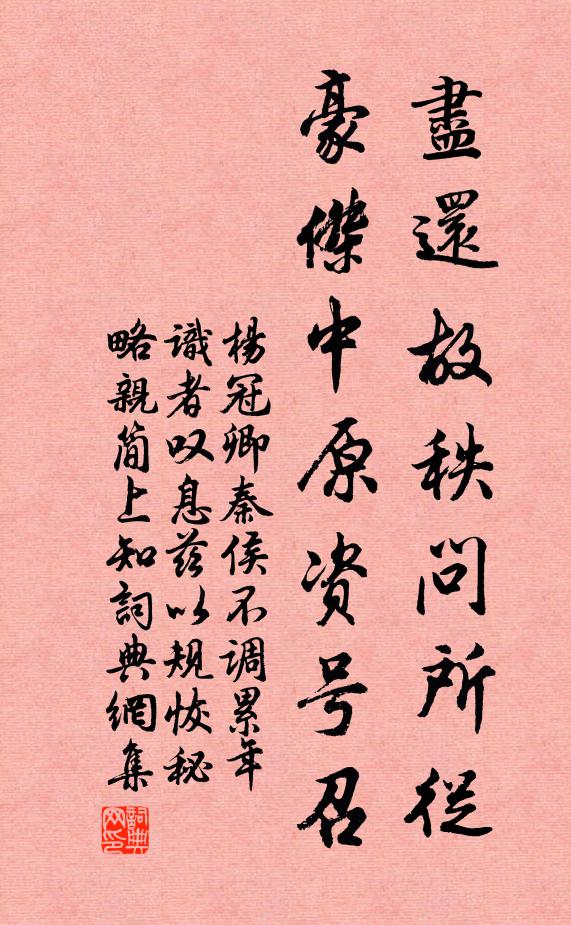 盡還故秩問所從
豪傑中原資号召
楊冠卿秦侯不调累年
識者叹息茲以規恢秘
略親简上知詞典網集
詞典网印